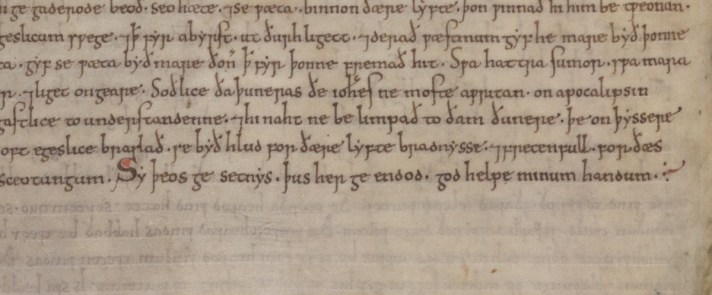 ge gaderode beoð. seo hæte. ⁊ se wæta. binnon ðære lyfte. þoñ winnað hi him be tweonan.
egeslicum swege. ⁊ ꝥ fyr abyrst. ut ðurh ligett. ⁊ derað wæstmum gyf he mare byð þonne
ta. gyf se wæta byð mare ðoñ ꝥ fyr þonne fremað hit. Swa hattra sumor. swa mara
r. ⁊ liget on geare. Soðlice ða þuneras ðe ioh̅es ne moste awritan. on apocalipsin
gastlice to understandenne. ⁊ hi naht ne be limpað to ðam ðunere. þe on þyssere
oft egeslice brastlað. se byð hlud for ðære lyfte bradnysse. ⁊ frecenfull. for ðæs
sceotungum. Sy þeos ge setnys. þus her ge endod. god helpe minum handum.